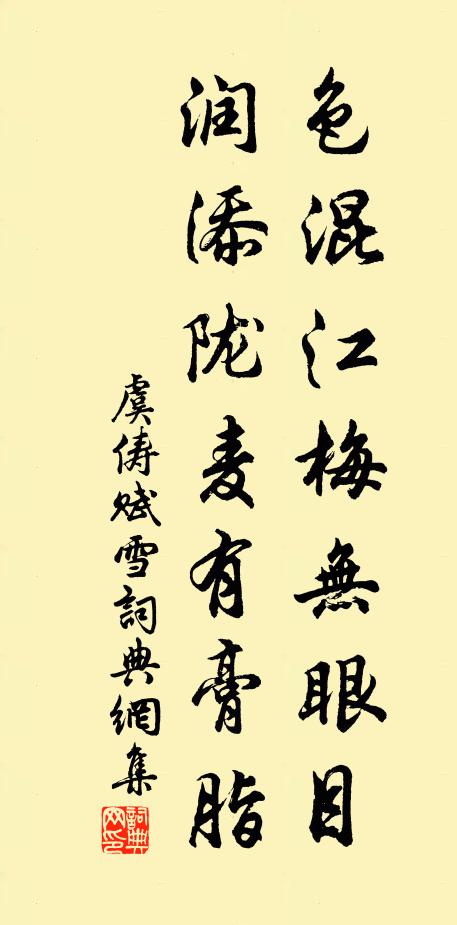 色混江梅無眼目
润添陇麦有膏脂
虞俦赋雪詞典網集
詞典網印